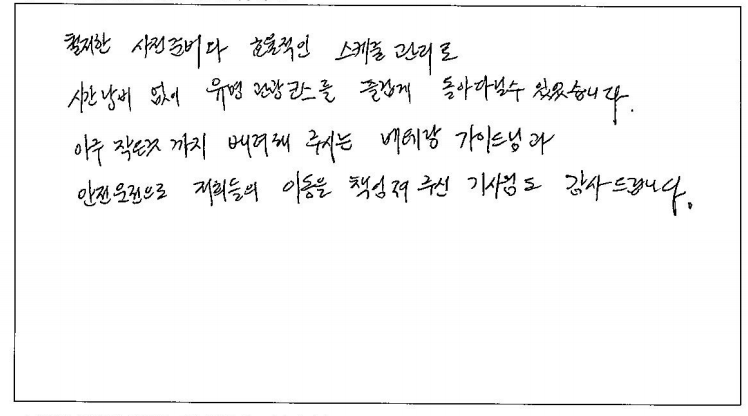 철저한 사전준비와 효율적인 스케줄 관리로
시간낭비 없이 유명 관광코스를 즐겁게 돌아다닐수 있었습니다.
아주 작은것 까지 배려해 주시는 베테랑 가이드님과
안전운전으로 저희들의 이동을 책임져 주신 기사님도 감사드립니다.